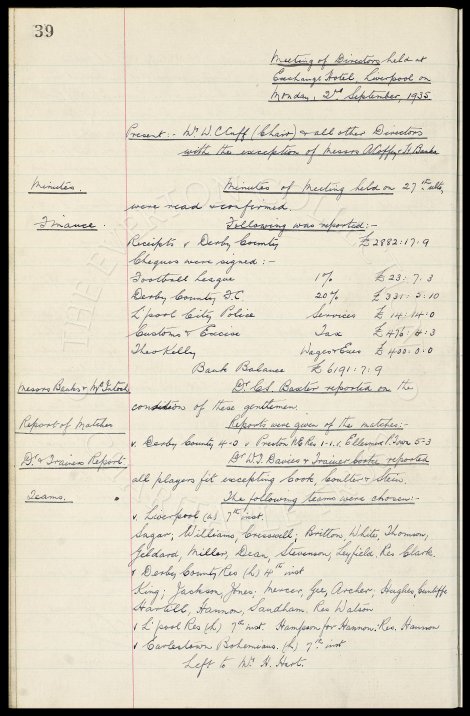 39
Meeting of Directors held at
Exchange Hotel, Liverpool on
Monday, 2nd September, 1935
Present:- Mr W. C. Cuff (Chair) & all other Directors
with the exception of Messrs A Coffey & H. Banks
Minutes. Minutes of Meeting held on 27th ulto,
were read & confirmed.
Finance. Following was reported:-
Receipts v Derby County £2882:17:9
Cheques were signed:-
Football League 1% £23:7:3
Derby County F.C. 20% £331:5:10
L'pool City Police Services £14:14:0
Customs & Excise Tax £476:6:3
Theo Kelly Wages & Exes £400:0:0
Bank Balance £6191:7:9
Messrs Banks & McIntosh Dr. C. S. Baxter reported on the
condition of these gentlemen.
Report of Matches Reports were given of the matches:-
v. Derby County 4-0 v Preston N.E. Res 1-1. v. Ellesmere P. Town 5-3
Dr & Trainers Report. Dr W. J. Davies & Trainer Cooke reported
all players fit excepting Cook, Coulter & Stein.
Teams. The following teams were chosen:-
v. Liverpool (a) 7th inst.
Sagar; Williams, Cresswell; Britton, White, Thomson,
Geldard, Miller, Dean, Stevenson, Leyfield Res Clark.
v Derby County Res (h) 4th inst
King; Jackson, Jones; Mercer, Gee, Archer; Hughes, Cunliffe
Hartill, Hannon, Sandham. Res Watson
v L'pool Res (h) 7th inst. Hampson for Hannon. Res. Hannon
v Earlestown Bohemians. (h) 7th inst
Left to Mr. H. Hart.